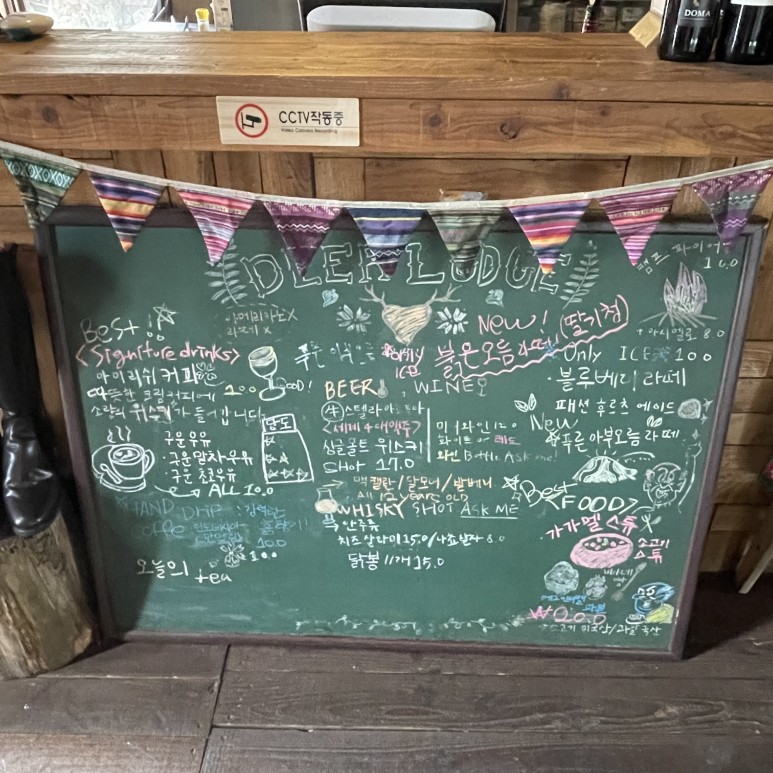 DOMA
CCTV작동중
Video Camera Recording
DEER LODGE
Best!!
<Signiture drinks>
아이리쉬 커피
따뜻한 크림커피에
소량의 위스키가 들어갑니다
GOOD!
구운우유
·구운말차우유
·구운 초코우유
ALL 10.0
HAND DRIP
coffee
10.0
오늘의 tea
아메리카노 X
라떼 X
New! (딸기청)
Only ICE
붉은오름라떼
BEER
生 스텔라
<세계 4대맥주>
싱글몰트 위스키
SHOT 17.0
맥캘란/달모니/발베니
All 12 YEARS OLD
WHISKY SHOT ASK ME
안주류
치즈살라미 15.0/나쵸살사 8.0
닭봉 11개 15.0
WINE
화이트 or 레드
와인 Bottle Ask me!
캠프파이어
16.0
Only ICE 10.0
·블루베리 라떼
패션 후르츠 에이드
New
푸른 아부오름 라떼
Best
<FOOD>
·가가멜 스튜
소고기
스튜